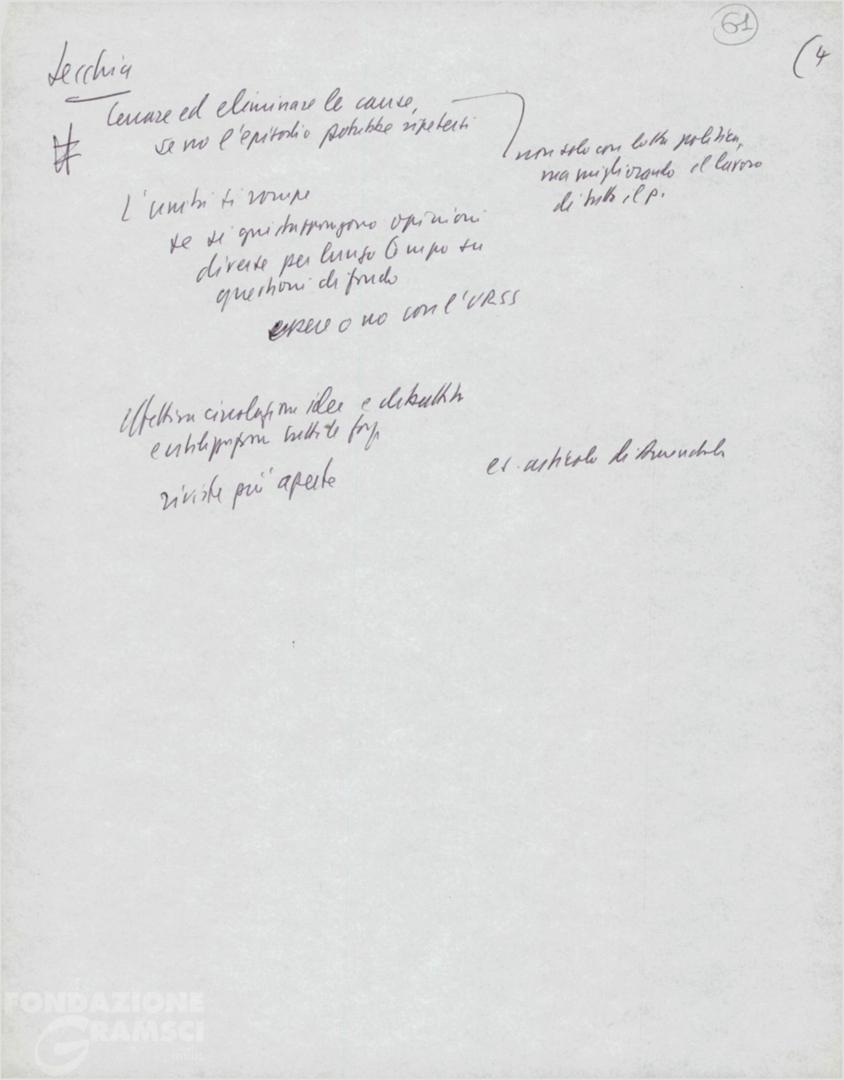 61
(4
Secchia
cercare ed eliminare le cause,
se no l'episodio potrebbe ripetersi
non solo con lotta politica,
ma migliorando il lavoro
di tutto il p.
L'unità si rompe
se si giustappongono opinioni
diverse per lungo tempo su
questioni di fondo
essere o no con l'URSS
effettiva circolazione idee e dibattito
e tutte le
riviste più aperte
es. articolo di Amendola
FONDAZIONE
GRAMSCI